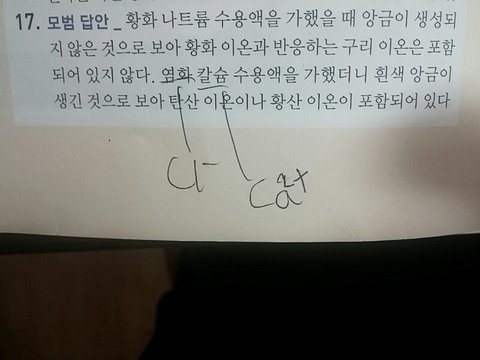 17. 모범 답안 _ 황화 나트륨 수용액을 가했을 때 앙금이 생성되
지 않은 것으로 보아 황화 이온과 반응하는 구리 이온은 포함
되어 있지 않다. 염화 칼슘 수용액을 가했더니 흰색 앙금이
생긴 것으로 보아 탄산 이온이나 황산 이온이 포함되어 있다
Cl⁻
Ca²⁺